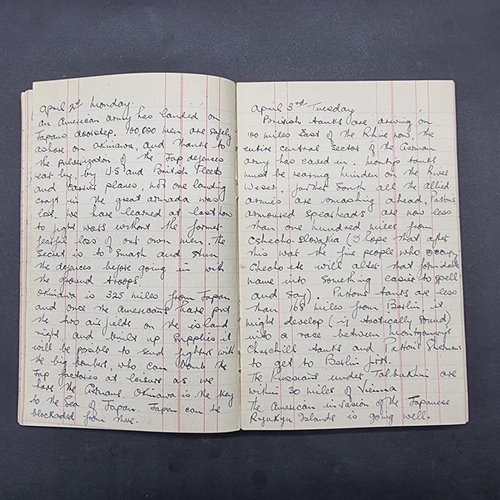 April 2nd Monday.
An American army has landed on
Japans doorstep. 100,000 men are safely
ashore on Okinawa, and thanks to
the pulverization of the Jap defences
by US and British Fleets
and Carrier planes, not one landing
craft in the great armada was
lost. We have learned at last how
to fight wars without the former
fearful loss of our own men. The
Secret is to Smash and Stun
the defences before going in with
the ground troops.
Okinawa is 325 miles from Japan
and once the Americans have put
the two airfields on the island
right and built up Supplies it
will be possible to send fighters with
the big bombers who can bomb the
Jap factories at leisure as we
have the Germans. Okinawa is the key
to the Sea of Japan. Japan can be
blockaded from there.
April 3rd Tuesday
British tanks are driving on
100 miles East of the Rhine now. The
entire central sector of the German
army has caved in. Monty's tanks
must be nearing Minden on the River
Weser. Further South all the allied
armies are smashing ahead. Pattons
armoured Spearheads are now less
than one hundred miles from
Czhecho-Slovakia (I hope that after
this war the fine people who occupy
Checho etc will alter that
name into Something easier to spell
and say). Pattons tanks are less
than 165 miles from Berlin. it
might develop (if tactically sound)
into a race between Montgomerys
Churchill tanks and Pattons Shermans
to get to Berlin first.
The Russians under Tolbukhin are
within 30 miles of Vienna
The American invasion of the Japanese
Ryukyu Islands is going well.